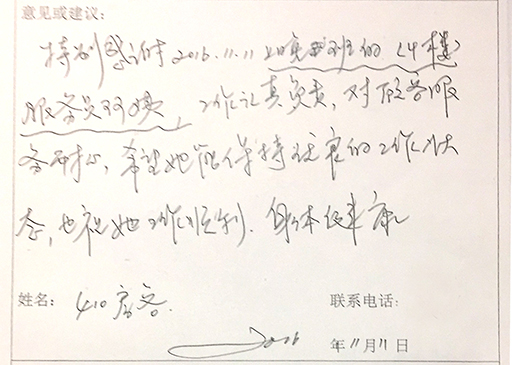 意见或建议:
特别感谢2016.11.11上夜班的(4楼)
服务员邓, 工作认真负责, 对顾客服
务, 希望她能保持优良的工作状
态, 也祝她工作顺利. 身体健康
姓名: 410房客. 联系电话:
2016 年11月11日